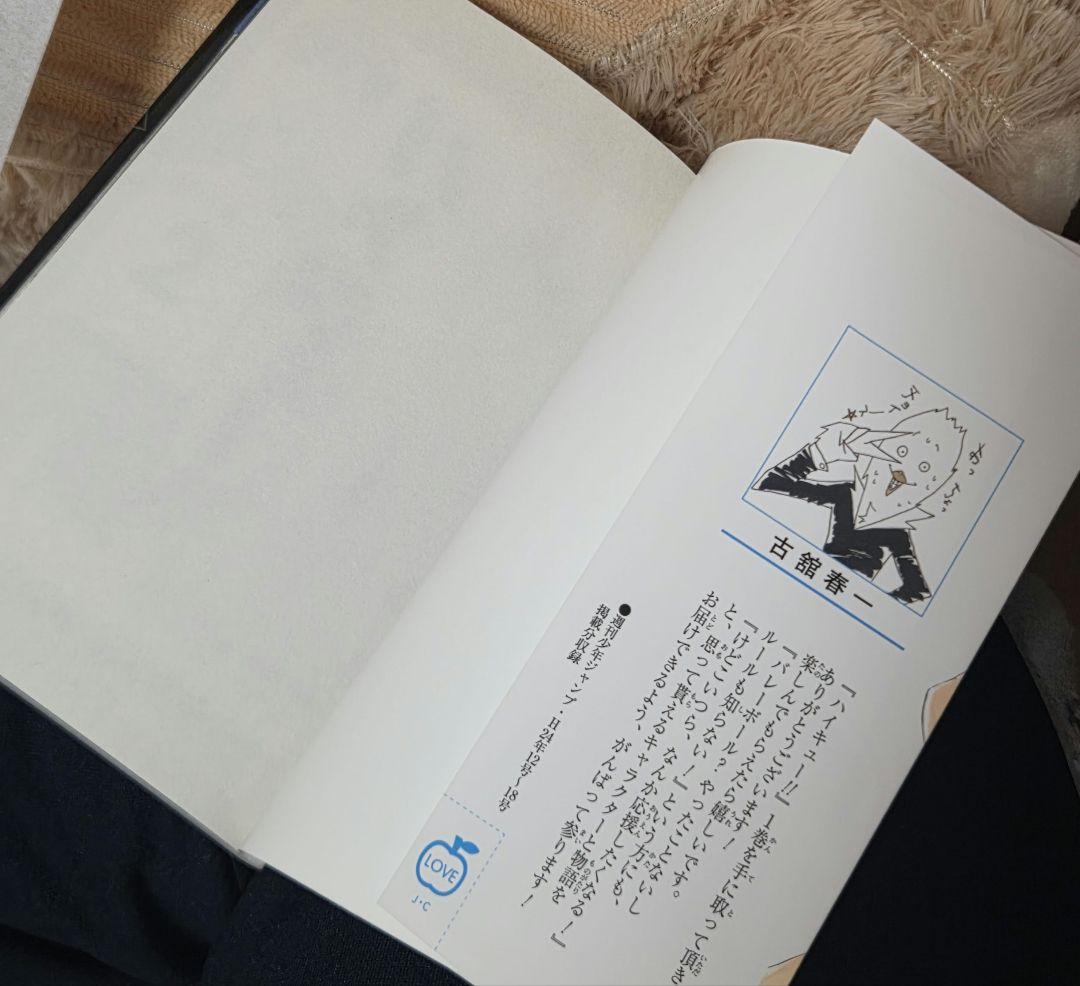 古舘春一
『ハイキュー!!』1巻を手に取って頂き
ありがとうございます!
楽しんでもらえたら嬉しいです。
『バレーボール?やったことないし
ルールも知らない!』という方にも、
『けどこいつら、なんか応援したくなる!』
と、思って貰えるキャラクターと物語を
お届けできるよう、がんばって参ります!
●週刊少年ジャンプ・H24年12号~18号
掲載分収録
LOVE
J・C